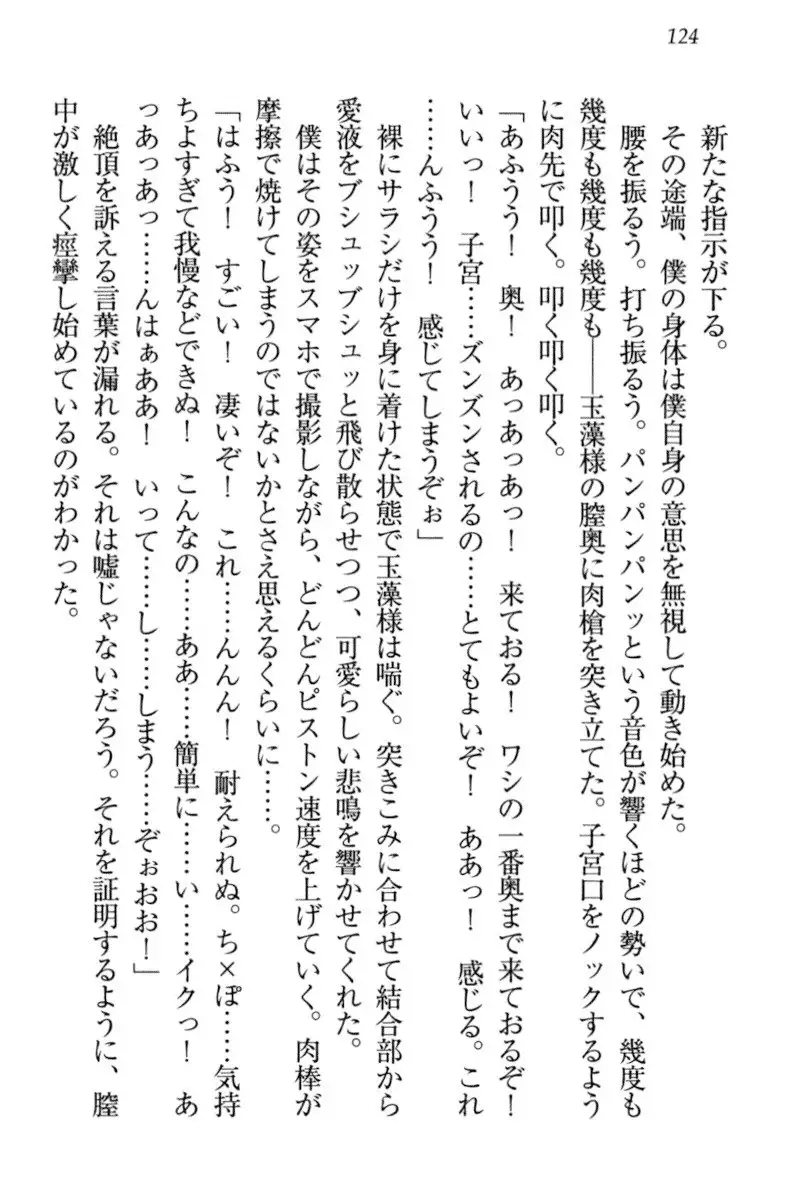 124
新たな指示が下る。
その途端、僕の身体は僕自身の意思を無視して動き始めた。
腰を振るう。打ち振るう。パンパンパンッという音色が響くほどの勢いで、幾度も
幾度も幾度も幾度も――玉藻様の膣奥に肉槍を突き立てた。子宮口をノックするよう
に肉先で叩く。叩く叩く叩く。
「あふうう！　奥！　あっあっあっ！　来ておる！　ワシの一番奥まで来ておるぞ！
いいっ！　子宮……ズンズンされるの……とてもよいぞ！　ああっ！　感じる。これ
……んふうう！　感じてしまうぞぉ」
裸にサラシだけを身に着けた状態で玉藻様は喘ぐ。突きこみに合わせて結合部から
愛液をブシュッブシュッと飛び散らせつつ、可愛らしい悲鳴を響かせてくれた。
僕はその姿をスマホで撮影しながら、どんどんピストン速度を上げていく。肉棒が
摩擦で焼けてしまうのではないかとさえ思えるくらいに……。
「はふう！　すごい！　凄いぞ！　これ……んんん！　耐えられぬ。ち×ぽ……気持
ちよすぎて我慢などできぬ！　こんなの……ああ……簡単に……い……イクっ！　あ
っあっあっ……んはぁああ！　いって……し……しまう……ぞぉおお！」
絶頂を訴える言葉が漏れる。それは嘘じゃないだろう。それを証明するように、膣
中が激しく痙攣し始めているのがわかった。